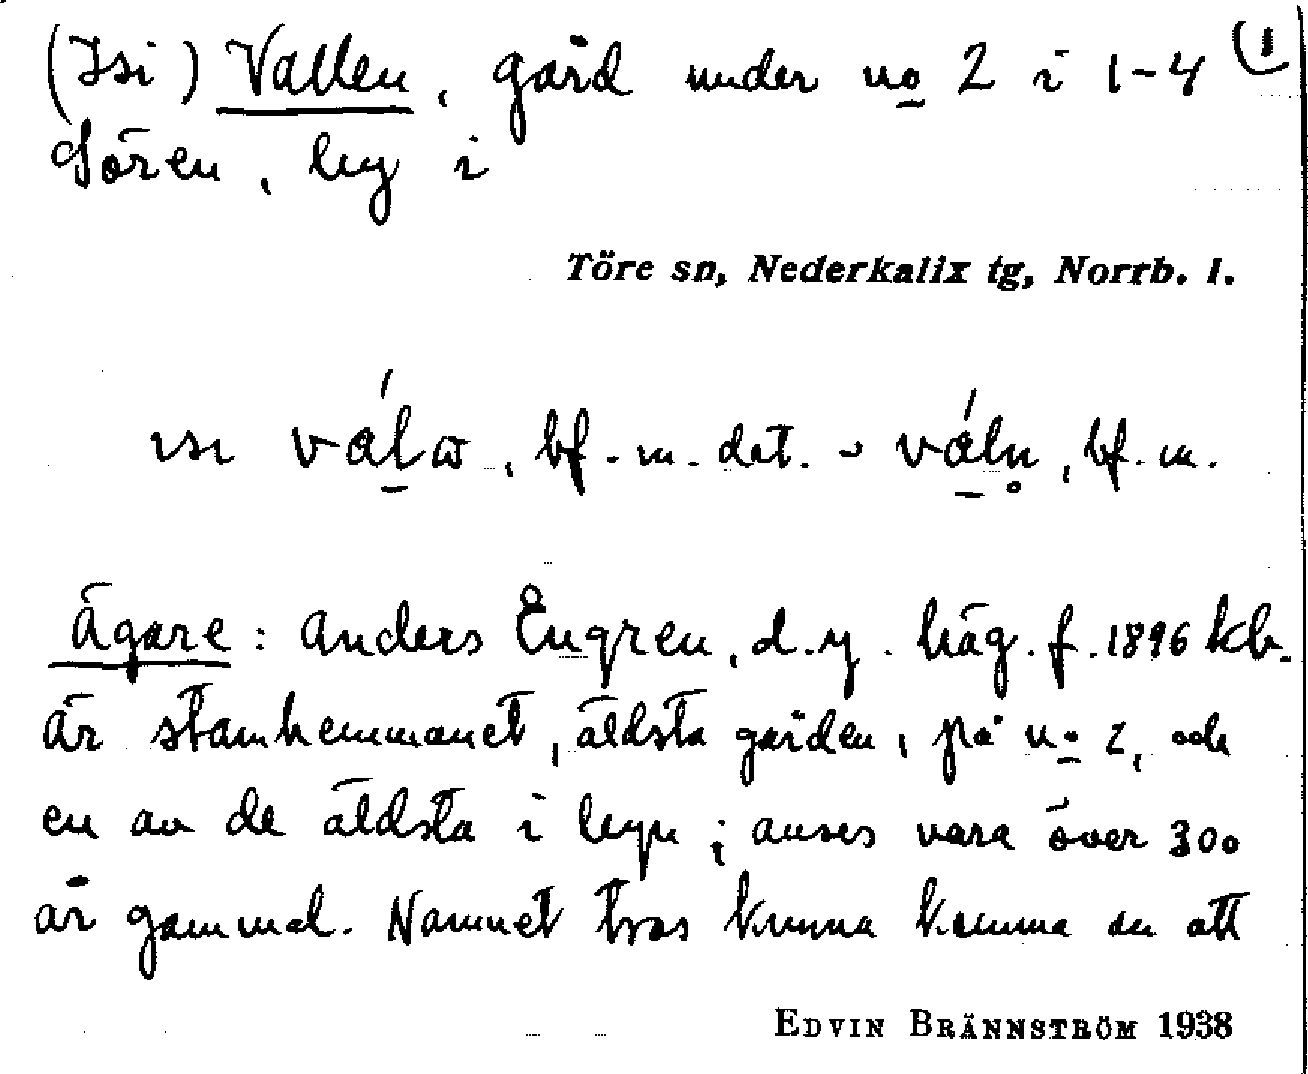 (Isi) Vallen, gård under no 2 i 1-4 (1
Sören, by i
Töre sn, Nederkalix tg, Norrb. l.
ısı válω, bf. m. dat. ~ váln̥, bf. m.
Ägare: Anders Engren, d.y. häg. f. 1896 kb.
är stamhemmanet, äldsta gården, på no 2, och
en av de äldsta i byn; anses vara över 300
år gammal. Namnet tros kunna komma av att
EDVIN BRÄNNSTRÖM 1938